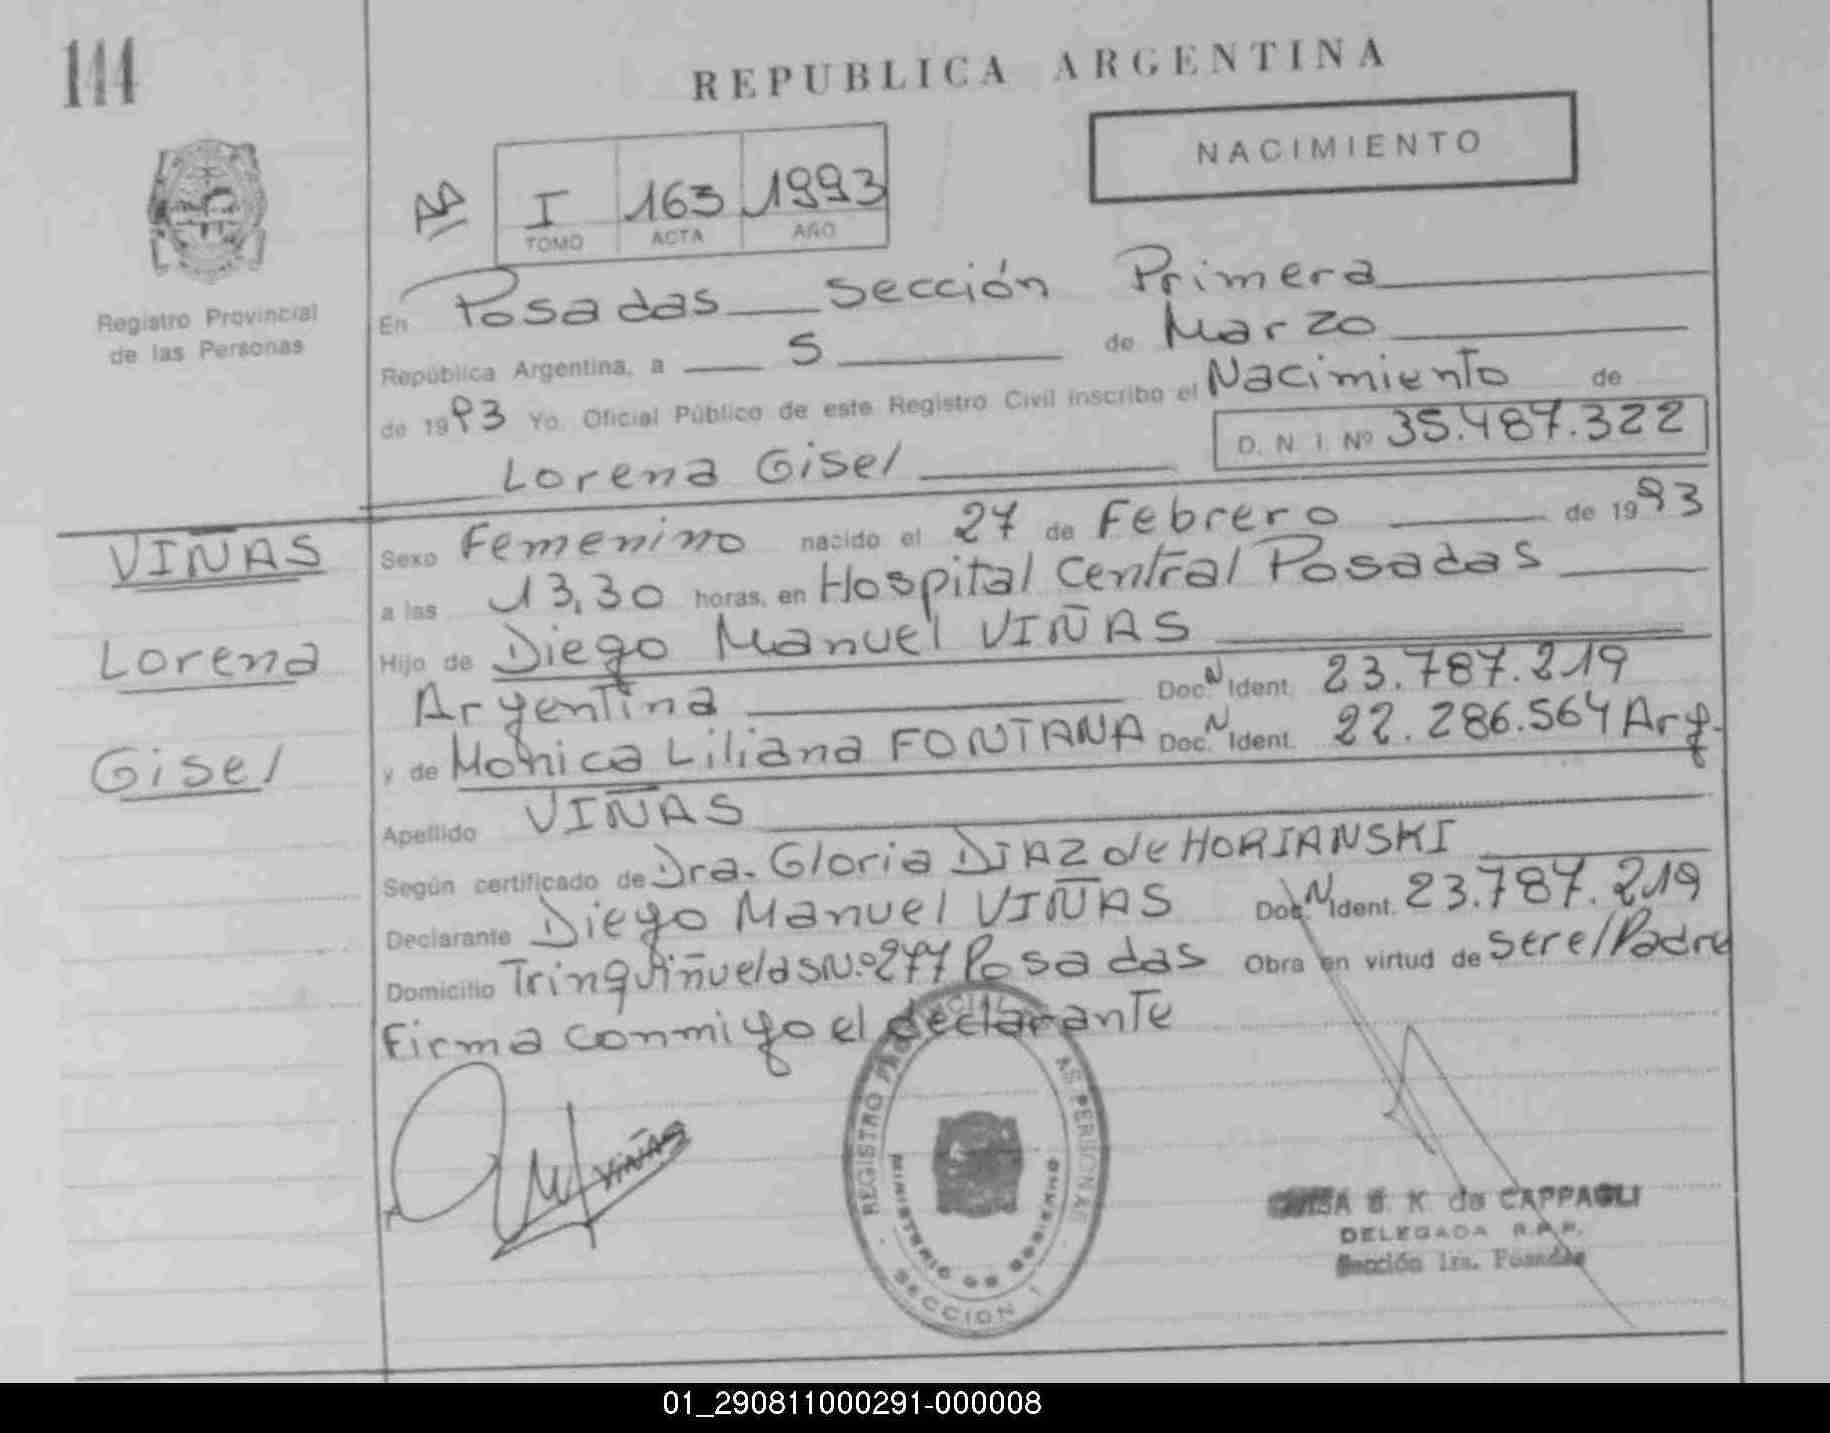 144
REPUBLICA ARGENTINA
NACIMIENTO
I 163 1993
TOMO ACTA AÑO
Registro Provincial
de las Personas
En Posadas sección Primera
República Argentina, a 5 de Marzo
de 1993 Yo. Oficial Público de este Registro Civil inscribo el Nacimiento de
D. N. I. Nº 35.487.322
Lorena Gisel
VIÑAS
Lorena
Gisel
Sexo Femenino nacido el 27 de Febrero de 1993
a las 13,30 horas, en Hospital Central Posadas
Hijo de Diego Manuel VIÑAS
Argentina Doc. N Ident. 23.787.219
y de Monica Liliana FONTANA Doc. N Ident. 22.286.564 Arg.
Apellido VIÑAS
Según certificado de Dra. Gloria DIAZ de HORIANSKI
Declarante Diego Manuel VIÑAS Doc. N Ident. 23.787.219
Domicilio Trinquiñuelas N.º 277 Posadas Obra en virtud de ser el Padre
Firma conmigo el declarante
VIÑAS
REGISTRO PROVINCIAL AS PERSONAS
MINISTERIO DE GOBIERNO
SECCION 1
S. K. de CAPPAGLI
DELEGADA R.P.P.
Sección 1ra. Posadas
01_290811000291-000008